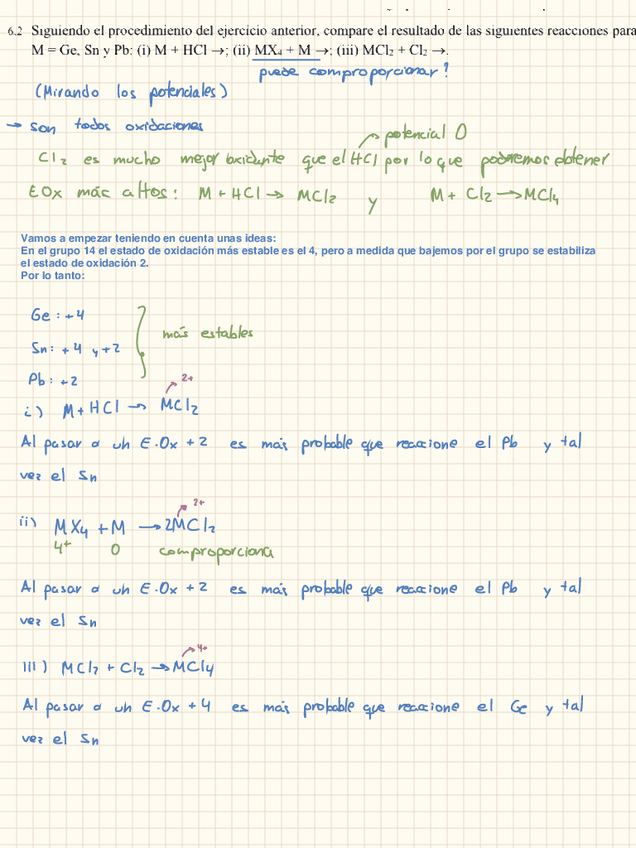 6.2 Siguiendo el procedimiento del ejercicio anterior, compare el resultado de las siguientes reacciones para
M = Ge, Sn y Pb: (i) M + HCl →; (ii) MX₄ + M →; (iii) MCl₂ + Cl₂ →.
puede comproporcionar?
(Mirando los potenciales)
→ son todos oxidaciones
potencial 0
Cl₂ es mucho mejor oxidante que el HCl por lo que podremos obtener
EOx más altos: M + HCl → MCl₂ y M + Cl₂ → MCl₄
Vamos a empezar teniendo en cuenta unas ideas:
En el grupo 14 el estado de oxidación más estable es el 4, pero a medida que bajemos por el grupo se estabiliza
el estado de oxidación 2.
Por lo tanto:
Ge: +4
más estables
Sn: +4 y +2
Pb: +2
2+
i) M + HCl → MCl₂
Al pasar a un E.Ox +2 es más probable que reaccione el Pb y tal
vez el Sn
2+
ii) MX₄ + M → 2MCl₂
4+ 0 comproporciona
Al pasar a un E.Ox +2 es más probable que reaccione el Pb y tal
vez el Sn
4+
III) MCl₂ + Cl₂ → MCl₄
Al pasar a un E.Ox +4 es más probable que reaccione el Ge y tal
vez el Sn